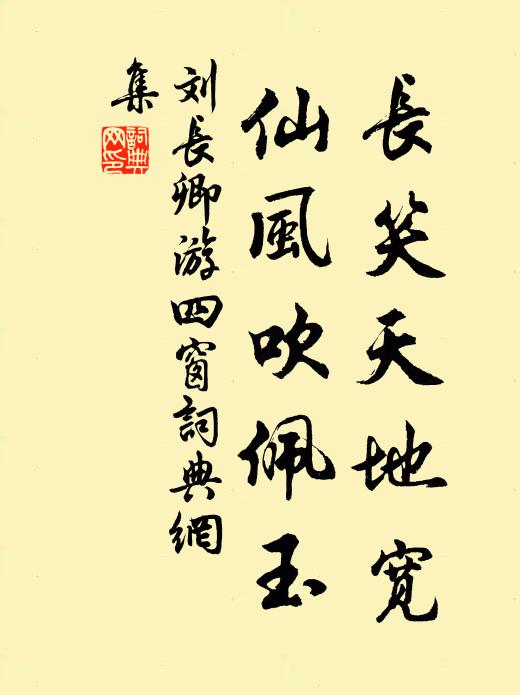 長笑天地寬
仙風吹佩玉
刘長卿游四窗詞典網
集
詞典网印